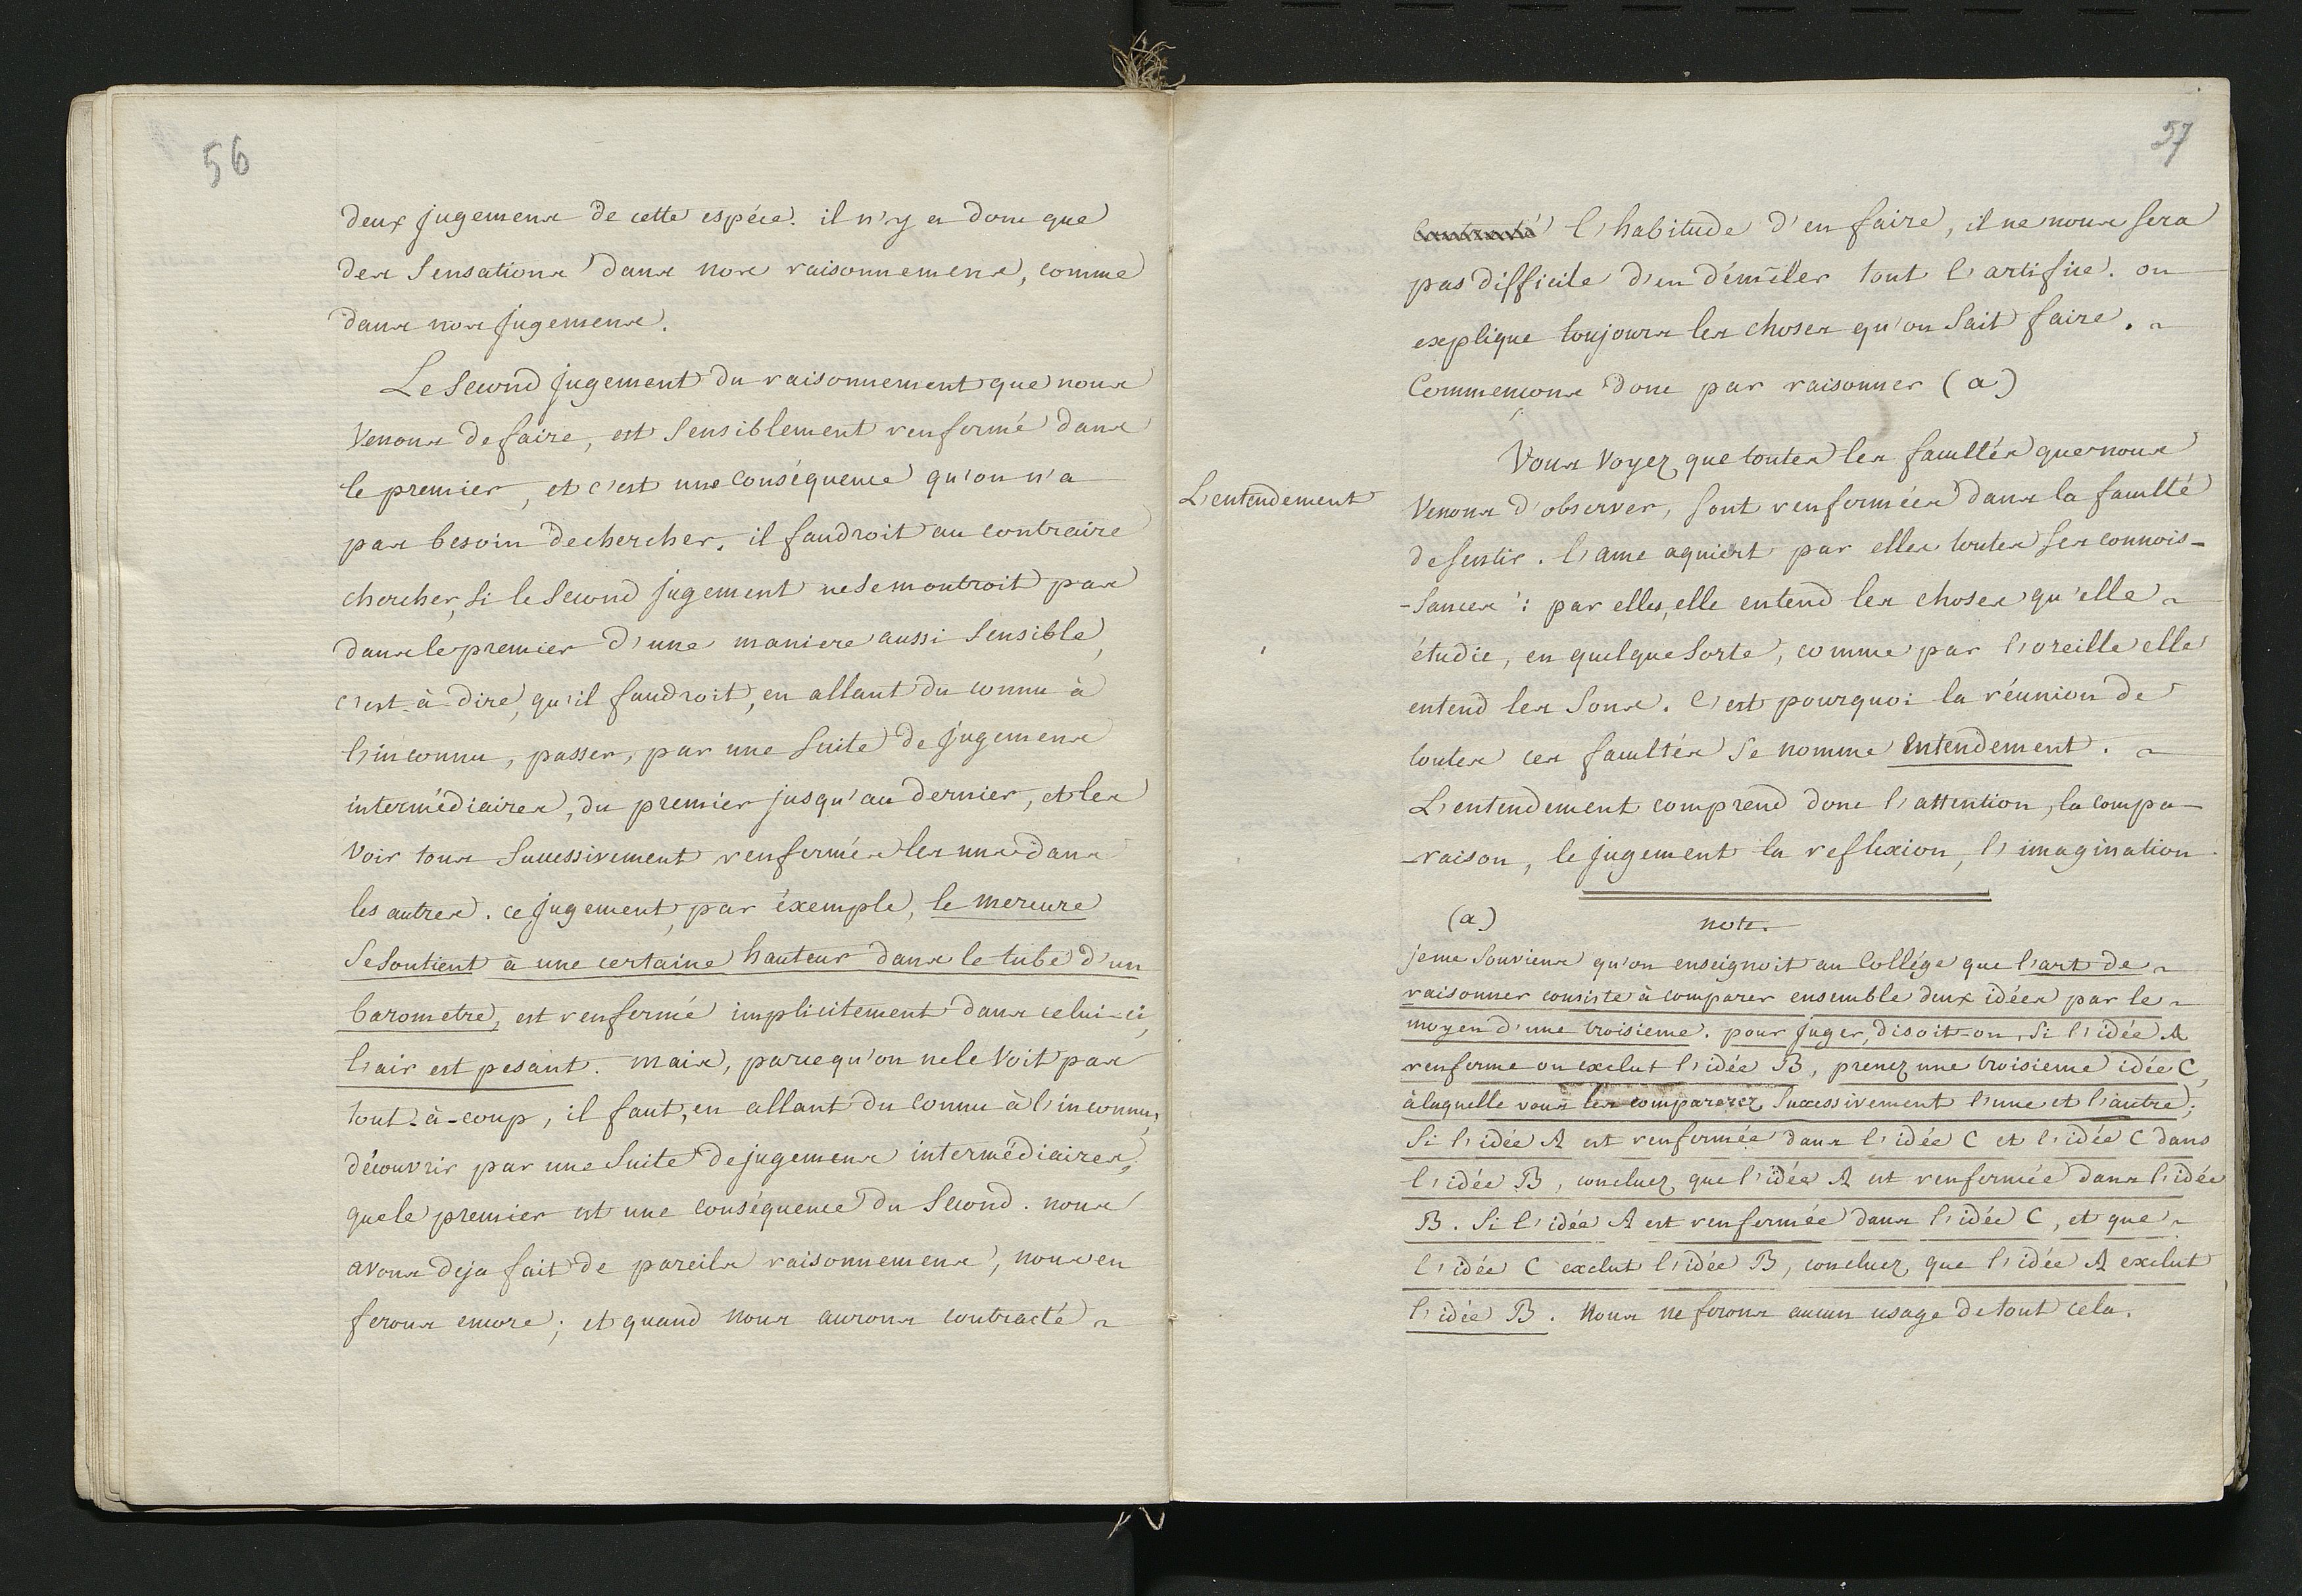 56
deux jugemens de cette espéce. il n'y a donc que
des Sensations dans nos raisonnemens, comme
dans nos jugemens.
Le Second jugement du raisonnement que nous
Venons de faire, est Sensiblement renfermé dans
le premier, et c'est une Conséquence qu'on n'a
pas besoin de chercher. il faudroit au contraire
chercher, Si le Second jugement ne se montroit pas
dans le premier d'une maniere aussi Sensible,
c'est-à-dire, qu'il faudroit, en allant du connu à
l'inconnu, passer, par une Suite de jugemens
intermédiaires, du premier jusqu'au dernier, et les
Voir tous Successivement renfermés les uns dans
les autres. ce jugement, par éxemple, le mercure
Se Soutient à une certaine hauteur dans le tube d'un
barometre, est renfermé implicitement dans celui-ci,
l'air est pesant. mais, parcequ'on ne le Voit pas
tout-à-coup, il faut, en allant du Connu à l'inconnu,
découvrir par une Suite de jugemens intermédiaires,
que le premier est une conséquence du Second. nous
avons deja fait de pareils raisonnemens, nous en
ferons encore; et quand nous aurons contracté
57
l'habitude d'en faire, il ne nous Sera
pas difficile d'en démêler tout l'artifice. on
explique toujours les choses qu'on Sait faire.
Commencons donc par raisonner (a)
Vous Voyez que toutes les facultés que nous
L'entendement
Venons d'observer, Sont renfermées dans la faculté
de Sentir. l'ame aquiert par elles toutes Ses connois-
-Sances: par elles, elle entend les choses qu'elle
étudie, en quelque Sorte, comme par l'oreille elle
entend les Sons. C'est pourquoi la réunion de
toutes ces facultés Se nomme Entendement.
L'entendement comprend donc l'attention, la compa-
-raison, le jugement la reflexion, l'imagination
(a) note.
je me Souviens qu'on enseignoit au Collége que l'art de
raisonner consiste à comparer ensemble deux idées par le
moyen d'une troisieme. pour juger, disoit-on, Si l'idée A
renferme ou exclut l'idée B, prenez une troisieme idée C,
à laquelle vous les comparerez Successivement l'une et l'autre;
Si l'idée A est renfermée dans l'idée C et l'idée C dans
l'idée B, concluez que l'idée A est renfermée dans l'idée
B. Si l'idée A est renfermée dans l'idée C, et que
l'idée C exclut l'idée B, concluez que l'idée A exclut
l'idée B. Nous ne ferons aucun usage de tout cela.